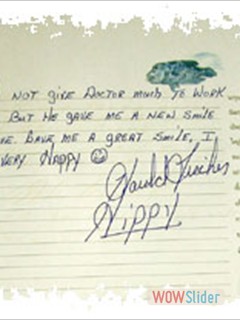 NOT GIVE DOCTOR much To WORK
BUT HE GAVE ME A NEW SMILE
VE. GAVE ME A GREAT SMILE, I
VERY HAPPY
HIPPY
WOWSlider